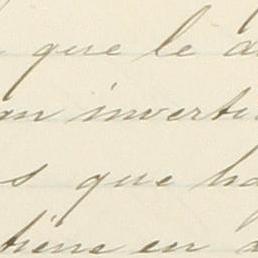 que le
invert
s que ha
tiene en